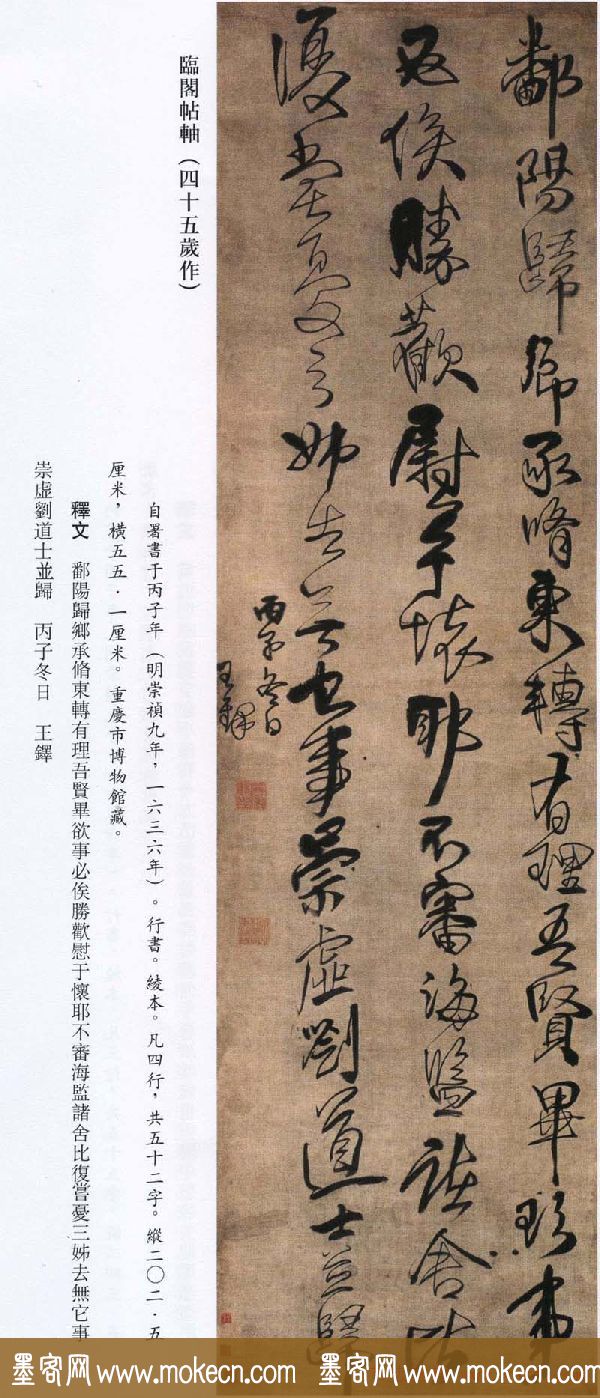 鄱陽歸鄉承脩東轉有理吾賢畢欲事
必俟勝歡慰于懷耶不審海監諸舍比
復嘗憂三姊去無它事崇虛劉道士並歸
丙子冬日
王鐸
臨閣帖軸（四十五歲作）
自署書于丙子年（明崇禎九年，一六三六年）。行書。綾本。凡四行，共五十二字。縱二〇二·五
厘米，橫五五·一厘米。重慶市博物館藏。
釋文　鄱陽歸鄉承脩東轉有理吾賢畢欲事必俟勝歡慰于懷耶不審海監諸舍比復嘗憂三姊去無它事
崇虛劉道士並歸　丙子冬日　王鐸
墨客网 www.mokecn.com 墨客网 www.mokecn.com